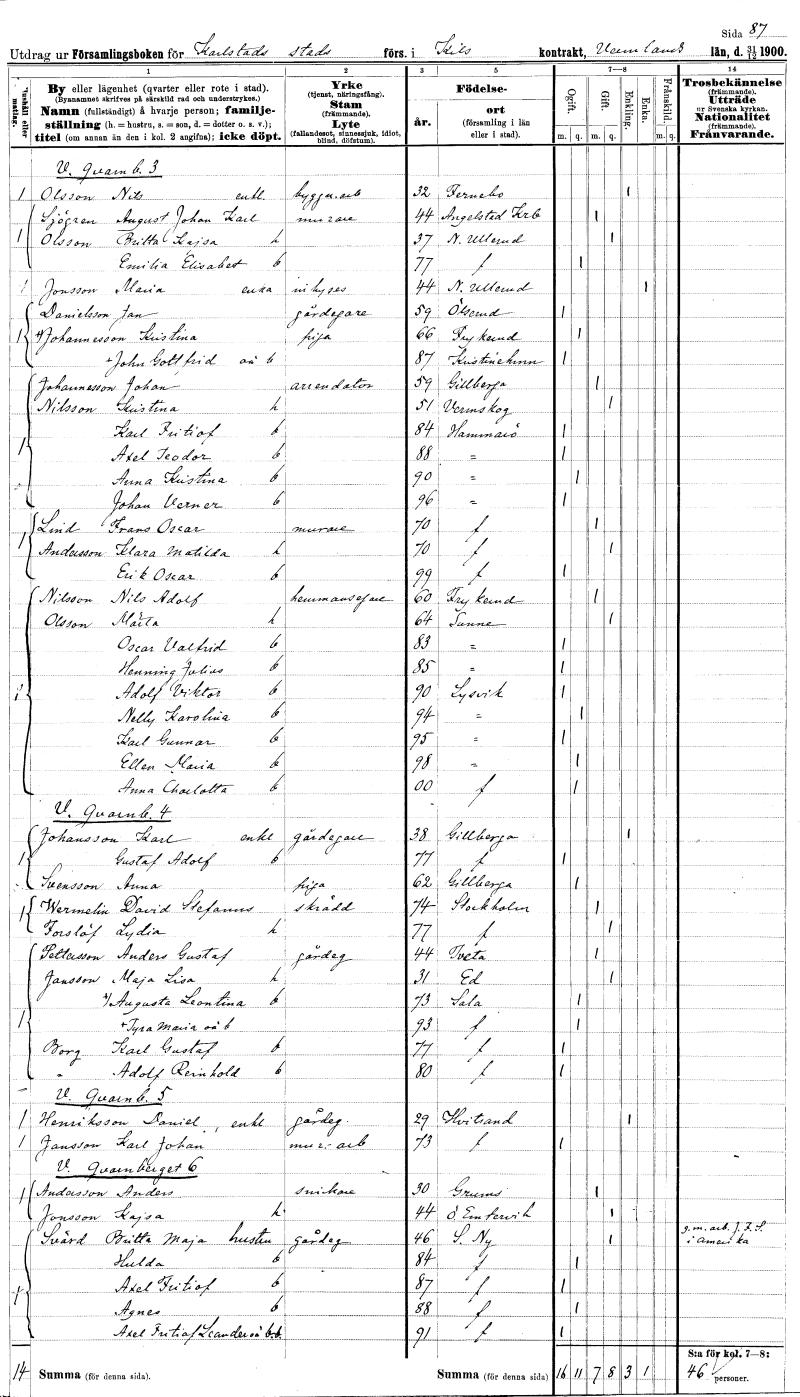 Sida 87
Utdrag ur Församlingsboken för Karlstads stads förs. i Kils kontrakt, Vermlands län, d. 31/12 1900.
1 2 3 5 7–8 14
By eller lägenhet (qvarter eller rote i stad).
(Byanamnet skrifves på särskild rad och understrykes.)
Namn (fullständigt) å hvarje person; familje-
ställning (h. = hustru, s. = son, d. = dotter o. s. v.);
titel (om annan än den i kol. 2 angifna); icke döpt.
Yrke
(tjenst, näringsfång).
Stam
(främmande).
Lyte
(fallandesot, sinnessjuk, idiot,
blind, döfstum).
Födelse-
år.
ort
(församling i län
eller i stad).
Ogift. Gift. Enkling. Enka. Frånskild.
m. q. m. q. m. q.
Trosbekännelse
(främmande).
Utträde
ur Svenska kyrkan.
Nationalitet
(främmande).
Frånvarande.
V. Qvarnb. 3
1 Olsson Nils enkl. byggn.arb 32 Fernebo 1
Sjögren August Johan Karl murare 44 Angelstad Krb 1
1 Olsson Britta Kajsa h 37 N. Ullerud 1
Emilia Elisabet b 77 f 1
1 Jonsson Maria enka inhyses 44 N. Ullerud 1
Danielsson Jan gårdegare 59 Ölserud 1
1 Johannesson Kristina piga 66 Frykerud 1
John Gottfrid oä b 87 Kristinehmn 1
Johannesson Johan arrendator 59 Gillberga 1
Nilsson Kristina h 51 Vermskog 1
Karl Fritiof b 84 Hammarö 1
1 Axel Teodor b 88 = 1
Anna Kristina b 90 = 1
Johan Verner b 96 = 1
1 Lind Frans Oscar murare 70 f 1
Andersson Klara Matilda h 70 f 1
Erik Oscar b 99 f 1
Nilsson Nils Adolf hemmansegare 60 Frykerud 1
Olsson Märta h 64 Sunne 1
Oscar Valfrid b 83 = 1
Henning Julius b 85 = 1
1 Adolf Viktor b 90 Lysvik 1
Nelly Karolina b 94 = 1
Karl Gunnar b 95 = 1
Ellen Maria b 98 = 1
Anna Charlotta b 00 f 1
V. Qvarnb. 4
Johansson Karl enkl gårdegare 38 Gillberga 1
1 Gustaf Adolf b 77 f 1
Svensson Anna piga 62 Gillberga 1
1 Wermelin David Stefanus skrädd 74 Stockholm 1
Forslöf Lydia h 77 f 1
Pettersson Anders Gustaf gårdeg 44 Tveta 1
Jansson Maja Lisa h 31 Ed 1
Augusta Leontina b 73 Sala 1
1 Tyra Maria oä b 93 f 1
Borg Karl Gustaf b 77 f 1
" Adolf Reinhold b 80 f 1
V. Qvarnb. 5
1 Henriksson Daniel, enkl gårdeg. 29 Hvitsand 1
1 Jansson Karl Johan mur. arb 73 f 1
V. Qvarnberget 6
1 Andersson Anders snickare 30 Grums 1
Jonsson Kajsa h 44 Ö. Emtervik 1
Svärd Britta Maja hustru gårdeg 46 S. Ny 1 g. m. arb. J. F. S. i Amerika
Hulda b 84 f 1
Axel Fritiof b 87 f 1
1 Agnes b 88 f 1
Axel Fritiof Leander oä b.b. 91 f 1
14 Summa (för denna sida). Summa (för denna sida) 16 11 7 8 3 1 S:a för kol. 7–8:
46 personer.